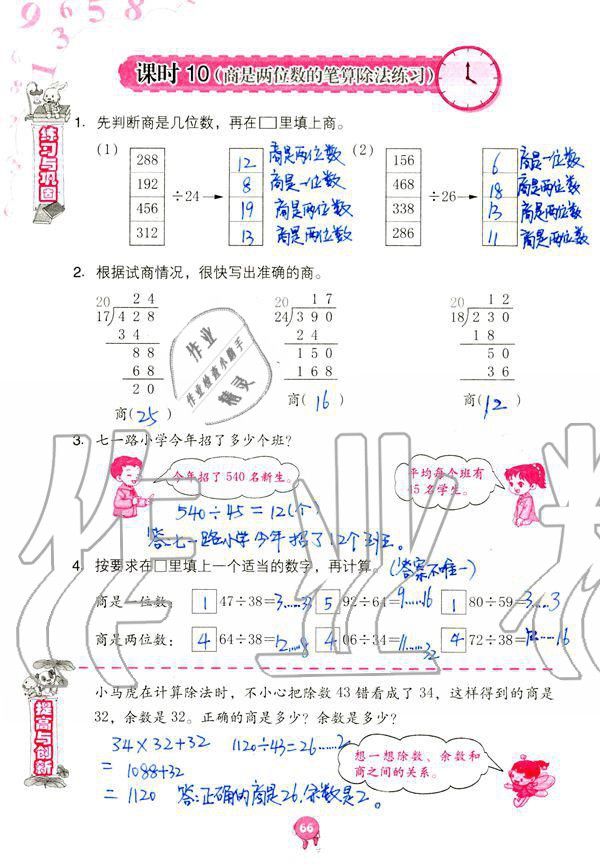 课时 10(商是两位数的笔算除法练习)
练习与巩固
1. 先判断商是几位数,再在□里填上商。
(1) 288 192 456 312 ÷24→ 12 商是两位数
8 商是一位数
19 商是两位数
13 商是两位数
(2) 156 468 338 286 ÷26→ 6 商是一位数
18 商是两位数
13 商是两位数
11 商是两位数
2. 根据试商情况,很快写出准确的商。
20 24
17)428
34
88
68
20
商(25)
20 17
24)390
24
150
168
商(16)
20 12
18)230
18
50
36
商(12)
3. 七一路小学今年招了多少个班?
今年招了 540 名新生。
平均每个班有
45 名学生。
540÷45=12(个)
答:七一路小学今年招了12个班。
4. 按要求在□里填上一个适当的数字,再计算。(答案不唯一)
商是一位数: 1 47÷38=3……33 5 92÷64=9……16 1 80÷59=3……3
商是两位数: 4 64÷38=12……8 4 06÷34=11……32 4 72÷38=12……16
提高与创新
小马虎在计算除法时,不小心把除数 43 错看成了 34,这样得到的商是
32,余数是 32。正确的商是多少?余数是多少?
34×32+32 1120÷43=26……2
=1088+32
=1120 答:正确的商是26,余数是2。
想一想除数、余数和
商之间的关系。
66
作业
作业检查小助手
精灵
作业